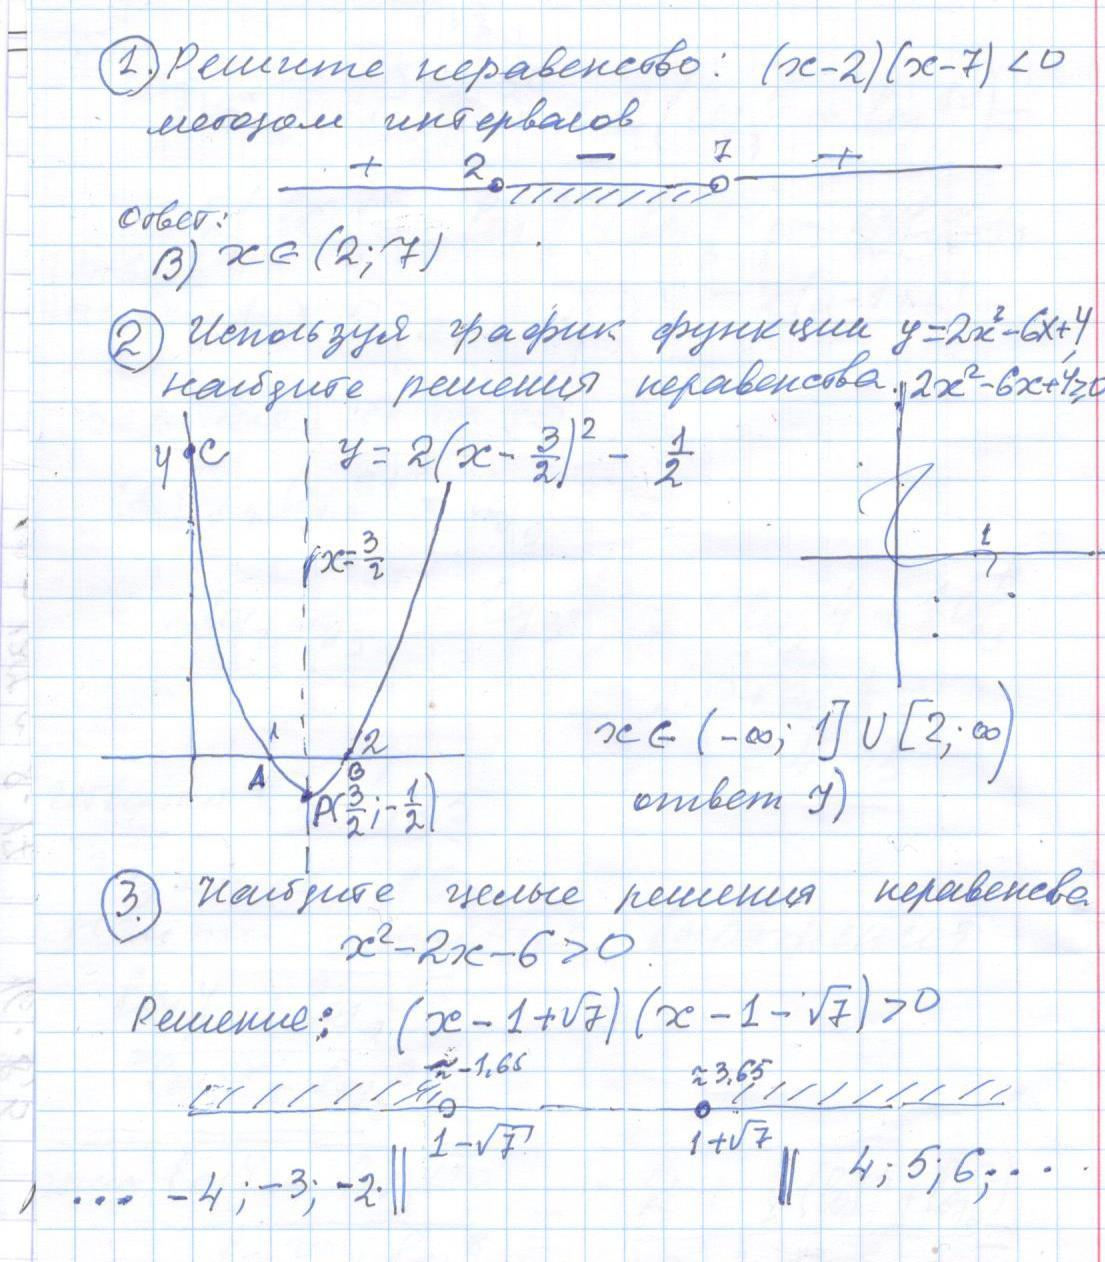 1. Решите неравенство: (x-2)(x-7)<0
методом интервалов
+ 2 − 7 +
Ответ:
В) x∈(2;7)
2 Используя график функции y=2x²-6x+4,
найдите решения неравенства. 2x²-6x+4≥0
y C y = 2(x - 3/2)² - 1/2
x=3/2
1
1 2
A B
P(3/2; -1/2)
x∈(-∞; 1]∪[2; ∞)
ответ У)
3. Найдите целые решения неравенства
x²-2x-6>0
Решение: (x-1+√7)(x-1-√7)>0
≈-1,65 ≈3,65
1-√7 1+√7
... -4; -3; -2 || || 4; 5; 6; ...